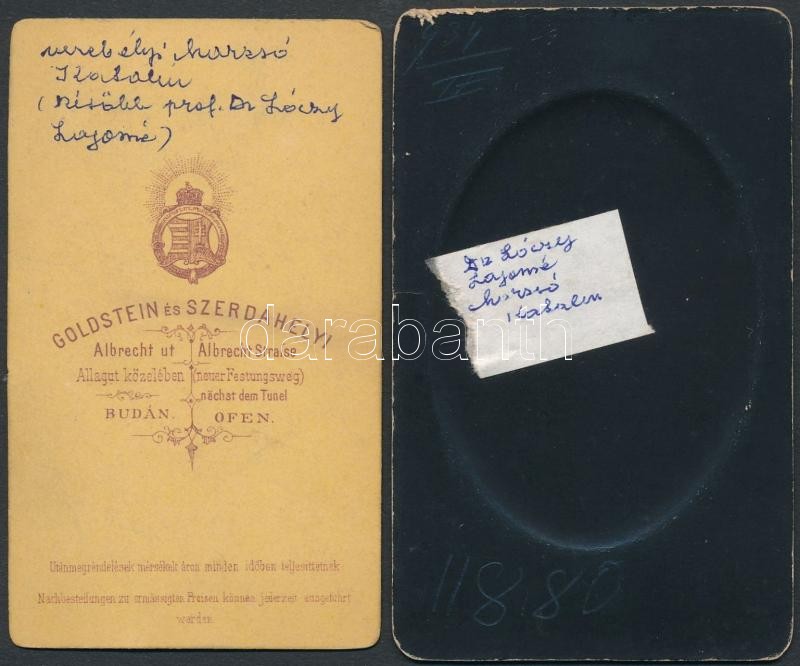 verebélyi Marzsó
Katalin
(később prof. Dr Lóczy
Lajosné)
GOLDSTEIN ÉS SZERDÁHELYI
Albrecht ut Albrecht Straise
Allagut közelében (neuer Festungsweg)
nächst dem Tunel
BUDÁN. OFEN.
Utánmegrendelések mérsékelt áron minden időben teljesittetnek
Nachbestellungen zu ermässigten Preisen können jederzeit ausgeführt
werden
Dr Lóczy
Lajosné
Marzsó
Katalin
11880
darabanth